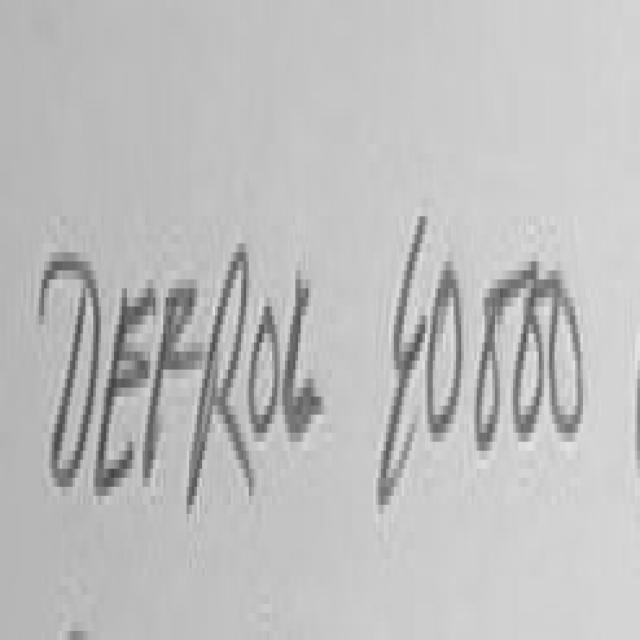 DEFROL 60000